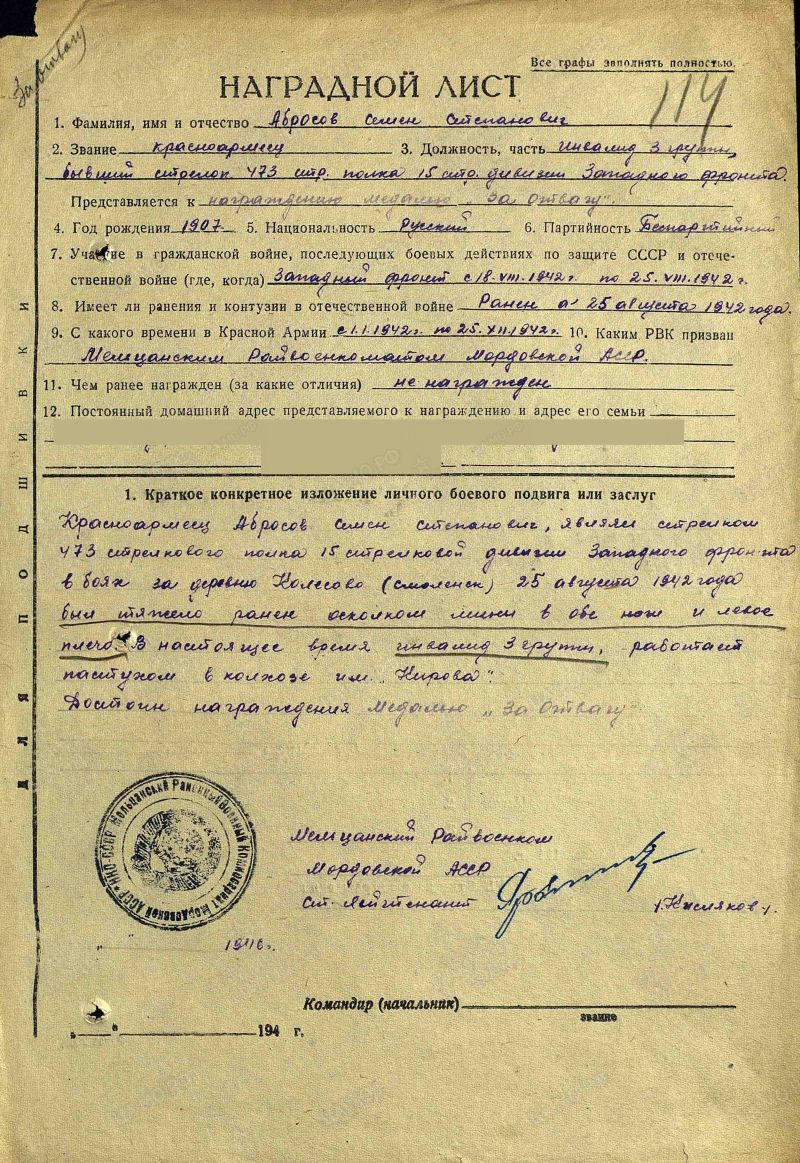 За отвагу
Все графы заполнять полностью.
НАГРАДНОЙ ЛИСТ
114
1. Фамилия, имя и отчество Абросов Семен Степанович
2. Звание красноармеец 3. Должность, часть инвалид 3 группы,
бывший стрелок 473 стр. полка 15 стр. дивизии Западного фронта.
Представляется к награждению медалью „За Отвагу".
4. Год рождения 1907 5. Национальность Русский 6. Партийность Беспартийный
7. Участие в гражданской войне, последующих боевых действиях по защите СССР и отече-
ственной войне (где, когда) Западный фронт с 18.VIII.1942 г. по 25.VIII.1942 г.
8. Имеет ли ранения и контузии в отечественной войне Ранен 25 августа 1942 года.
9. С какого времени в Красной Армии с 1.1.1942 г. по 25.XII.1942 г. 10. Каким РВК призван
Мельцанским Райвоенкоматом Мордовской АССР.
11. Чем ранее награжден (за какие отличия) не награжден
12. Постоянный домашний адрес представляемого к награждению и адрес его семьи
1. Краткое конкретное изложение личного боевого подвига или заслуг
Красноармеец Абросов Семен Степанович, являясь стрелком
473 стрелкового полка 15 стрелковой дивизии Западного фронта
в боях за деревню Колесово (Смоленск) 25 августа 1942 года
был тяжело ранен осколком мины в обе ноги и левое
плечо. В настоящее время инвалид 3 группы, работает
пастухом в колхозе им. „Кирова".
Достоин награждения Медалью „За Отвагу"
ДЛЯ ПОДШИВКИ
НКО-СССР Мельцанский Районный Военный Комиссариат Мордовской АССР
Мельцанский Райвоенком
Мордовской АССР
Ст. Лейтенант /Кисляков/.
„ " 1946 г.
Командир (начальник)
звание
„ " 194 г.